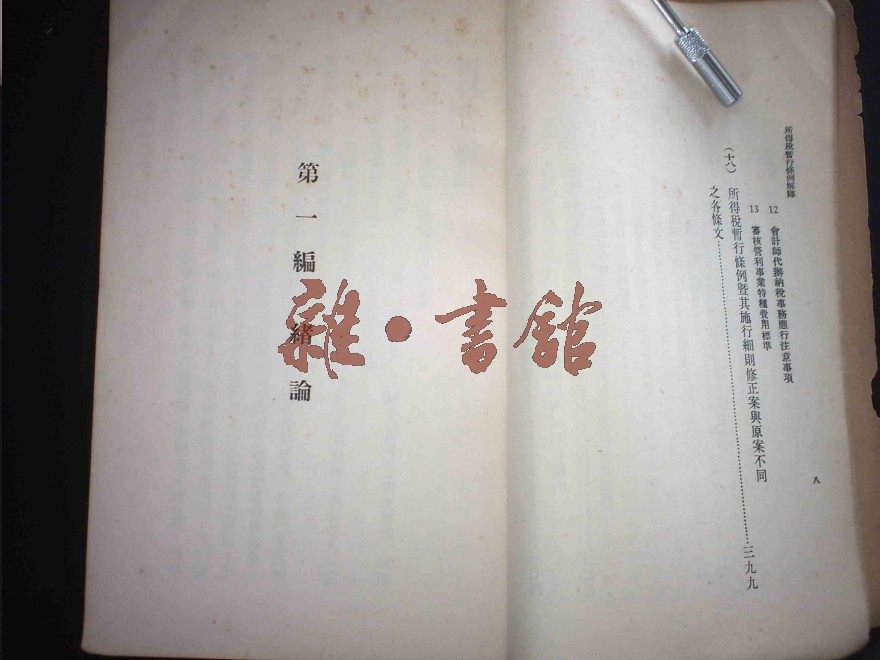 所得稅暫行條例解釋
12 會計師代辦納稅事務應行注意事項
13 審核營利事業特種費用標準
(十八) 所得稅暫行條例暨其施行細則修正案與原案不同
之各條文……三九九
八
第一編 緒論
雜·書館